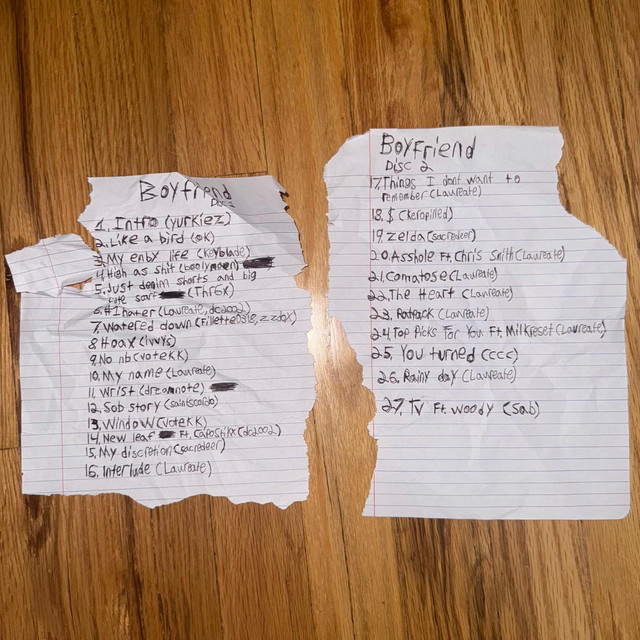 Boyfriend
Disc
1. Intro (yurkiez)
2. Like a bird (9k)
3. My enby life (keyblade)
4. High as shit
5. Just denim shorts and big
(Thr6x)
6. #1 hater (Laureate, dc2002)
7. Watered down
8 Hoax (lwys)
9. No nb (votekk)
10. My name (Laureate)
11. Wrist (dreamnote)
12. Sob story
13. Window (votekk)
14. New leaf Ft. (dc2002)
15. My discretion (sacredeer)
16. Interlude (Laureate)
Boyfriend
Disc 2
17. Things I dont want to
remember (Laureate)
18. $ (keropilled)
19. Zelda (sacredeer)
20. Asshole Ft. Chris Smith (Laureate)
21. Comatose (Laureate)
22. The Heart (Laureate)
23. (Laureate)
24. Top Picks For You Ft. Milkreset (Laureate)
25. You turned (cccc)
26. Rainy day (Laureate)
27. TV Ft. Woody (Sab)